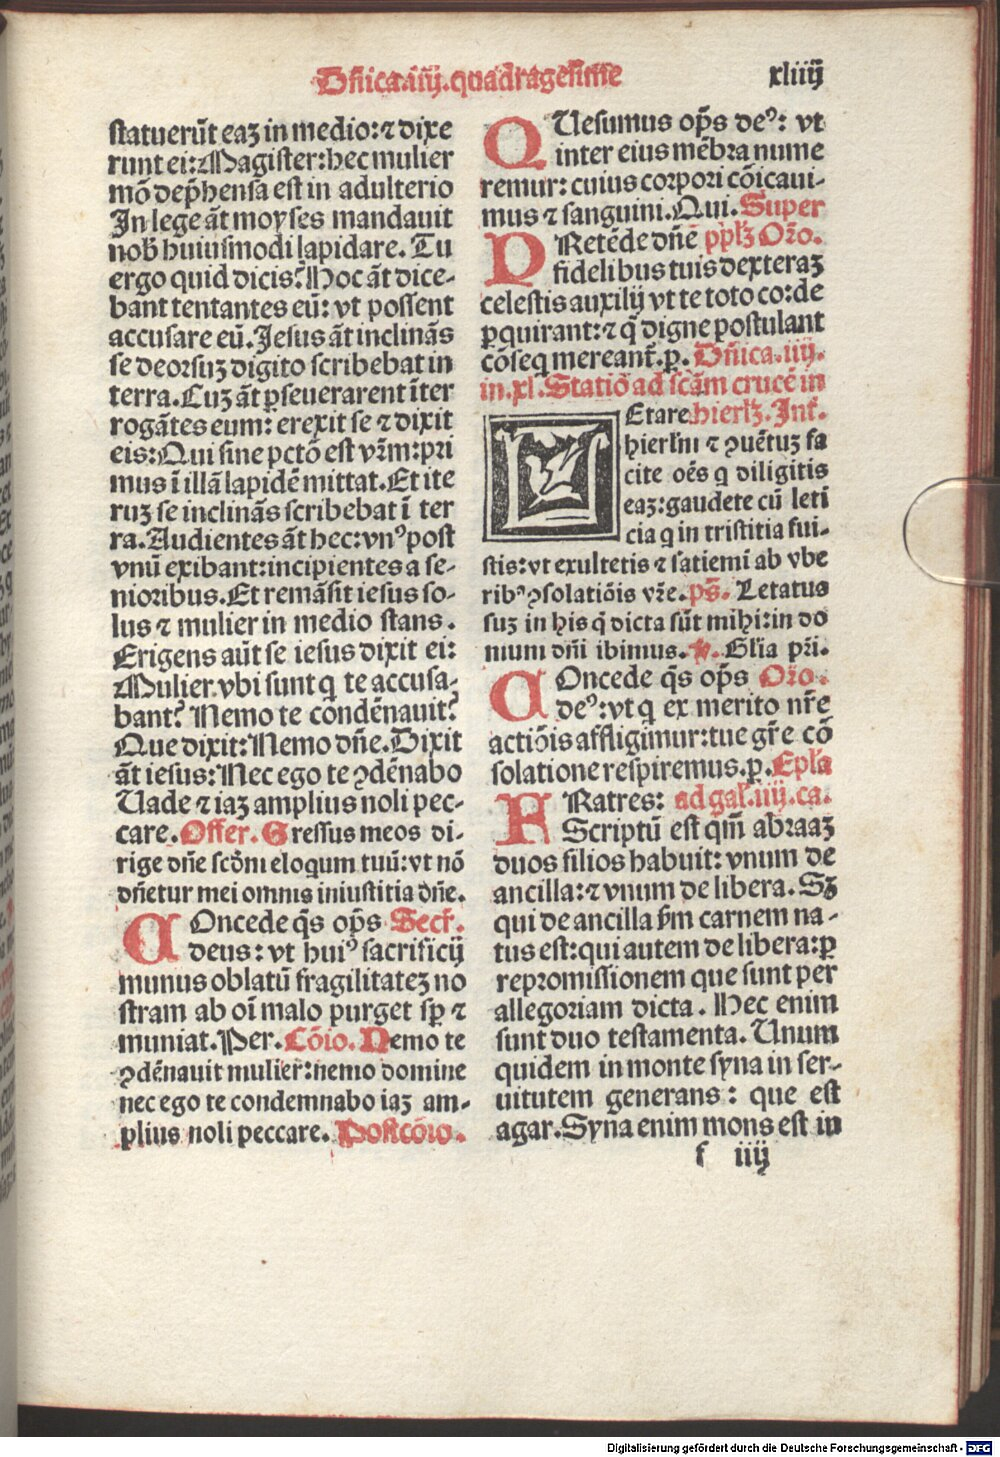 Dñica.iiij.quadragesime
xliiij
statuerūt eaꝫ in medio:⁊ dixe
runt ei:Magister:hec mulier
mō dep̄hensa est in adulterio
In lege āt moyses mandauit
nob̄ huiusmodi lapidare. Tu
ergo quid dicis? Hoc āt dice-
bant tentantes eū: vt possent
accusare eū. Jesus āt inclinās
se deorsuꝫ digito scribebat in
terra. Cuꝫ āt ꝑseuerarent īter
rogātes eum: erexit se ⁊ dixit
eis:Qui sine pctō est vr̄m:pri
mus ī illā lapidē mittat. Et ite
ruꝫ se inclinās scribebat ī ter
ra. Audientes āt hec:vnꝰ post
vnū exibant:incipientes a se-
nioribus. Et remāsit iesus so-
lus ⁊ mulier in medio stans.
Erigens aūt se iesus dixit ei:
Mulier vbi sunt q te accusa-
bant? Nemo te condēnauit?
Que dixit:Nemo dn̄e. Dixit
āt iesus:Nec ego te ꝯdēnabo
Uade ⁊ iaꝫ amplius noli pec-
care. Offer. Gressus meos di-
rige dn̄e scd̄m eloqum tuū:vt nō
dn̄etur mei omnis iniustitia dn̄e.
COncede q̄s op̄s Secr̄.
deus: vt huiꝰ sacrificij
munus oblatū fragilitateꝫ no
stram ab oī malo purget sꝑ ⁊
muniat. Per. Cōio. Nemo te
ꝯdēnauit mulier:nemo domine
nec ego te condemnabo iaꝫ am-
plius noli peccare. Postcōio.
QUesumus op̄s deꝰ: vt
inter eius mēbra nume
remur: cuius corpori cōicaui-
mus ⁊ sanguini. Qui. Super
PRetēde dn̄e pplꝫ Oro.
fidelibus tuis dexteraꝫ
celestis auxilij vt te toto corde
ꝑquirant:⁊ q̄ digne postulant
cōseq mereant̄.p. Dñica.iiij.
in.xl. Statiō ad scām crucē in
LEtare hierlꝫ. Int̄.
hierlm̄ ⁊ ꝯuētuꝫ fa
cite oēs q diligitis
eaꝫ:gaudete cū leti
cia q in tristitia fui-
stis:vt exultetis ⁊ satiemī ab vbe
ribꝰ ꝯsolatiōis vr̄e. ps̄. Letatus
suꝫ in his q̄ dicta sūt mihi:in do
mum dn̄i ibimus. ℣. Glīa pr̄i.
COncede q̄s op̄s Oro.
deꝰ:vt q ex merito nr̄e
actiōis affligimur:tue gr̄e cō
solatione respiremus.p. Epl̄a
FRatres: ad gal̄.iiij.ca.
Scriptū est qm̄ abraaꝫ
duos filios habuit: vnum de
ancilla:⁊ vnum de libera. Sꝫ
qui de ancilla ẜm carnem na-
tus est:qui autem de libera:ꝑ
repromissionem que sunt per
allegoriam dicta. Hec enim
sunt duo testamenta. Unum
quidem in monte syna in ser-
uitutem generans: que est
agar. Syna enim mons est in
f iiij
Digitalisierung gefördert durch die Deutsche Forschungsgemeinschaft - DFG